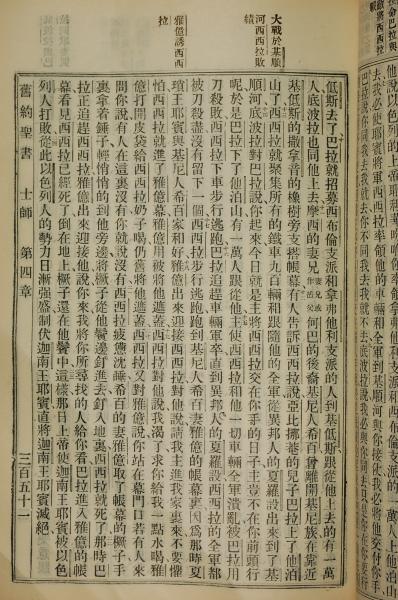 去我必使耶賓將軍西西拉率領他的車輛和全軍到基順河與你接仗我必將他交付你手
大戰於基順
河西西拉敗
績
雅億誘西西
拉
低斯去了巴拉就招募西布倫支派和拿弗他利支派的人到基低斯跟從他上去的有一萬
人底波拉也同他上去摩西的妻兄妻兄或作岳父何巴的後裔基尼人希百曾離開基尼族在靠近
基低斯的撒拿音的橡樹旁支搭帳幕有人告訴西西拉說亞比挪菴的兒子巴拉上了他泊
山了西西拉就聚集所有的鐵車九百輛和跟隨他的全軍從異邦人的夏羅設出來到了基
順河底波拉對巴拉說你起來今日就是主將西西拉交在你手的日子主豈不在你前頭行
呢於是巴拉下了他泊山有一萬人跟從他主使西西拉和他一切車輛全軍潰亂被巴拉用
刀殺敗西西拉下車步行逃跑巴拉追趕車輛軍卒直到異邦人的夏羅設西西拉的全軍都
被刀殺盡沒有留下一個西西拉步行逃跑跑到基尼人希百妻雅億的帳幕裏因爲那時夏
瑣王耶賓與基尼人希百家和好雅億出來迎接西西拉對他說請我主進我家裏來不要懼
怕西西拉就進了雅億幕雅億用被將他遮蓋西西拉對他說我渴了求你給我一點水喝雅
億打開皮袋給西西拉奶子喝仍舊將他遮蓋西西拉又對雅億說你站在幕門口若有人來
問你說有人在這裏沒有你就說沒有西西拉疲憊沈睡希百的妻雅億取了帳幕的橛子手
裏拿着錘子輕悄悄的到他旁邊將橛子從他鬢邊釘進去釘入地裏西西拉就死了那時巴
拉正追趕西西拉雅億出來迎接他說你來我將你所尋找的人給你看巴拉進入雅億的帳
幕看見西西拉已經死了倒在地上橛子還在他鬢中這樣那日上帝使迦南王耶賓被以色
列人打敗從此以色列人的勢力日漸強盛制伏迦南王耶賓直將迦南王耶賓滅絕
舊約聖書 士師 第四章 三百五十一